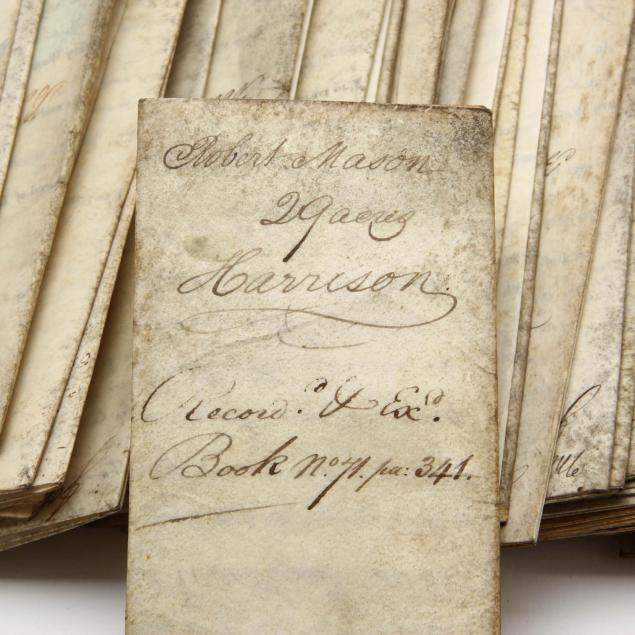 Robert Mason
29 acres
Harrison.
Record.d & Ex.d
Book No. 71. pa: 341.